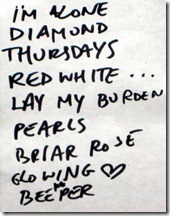 I'M ALONE
DIAMOND
THURSDAYS
RED WHITE ...
LAY MY BURDEN
PEARLS
BRIAR ROSE
GLOWING ♡
BEEPER